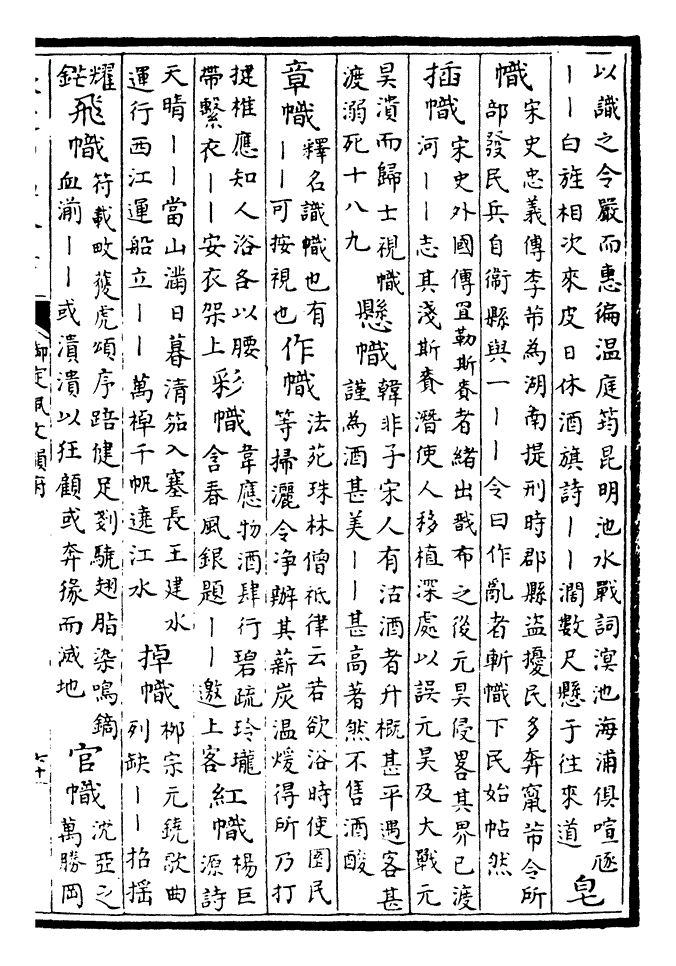 以識之令嚴而惠徧温庭筠昆明池水戰詞溟池海浦俱喧豗
丨丨白旌相次來皮日休酒旗詩丨丨濶數尺懸于往來道
皂
幟
宋史忠義傳李芾為湖南提刑時郡縣盜擾民多奔竄芾令所
部發民兵自衞縣與一丨丨令曰作亂者斬幟下民始帖然
插幟
宋史外國傳罝勒斯賚者緒出戬布之後元昊侵畧其界已渡
河丨丨志其淺斯賚潛使人移植深處以誤元昊及大戰元
昊潰而歸士視幟
渡溺死十八九
懸幟
韓非子宋人有沽酒者升概甚平遇客甚
謹為酒甚美丨丨甚高著然不售酒酸
章幟
釋名識幟也有
丨丨可按視也
作幟
法苑珠林僧祇律云若欲浴時使園民
等掃灑令净辦其薪炭温煖得所乃打
揵椎應知人浴各以腰
帶繫衣丨丨安衣架上
彩幟
韋應物酒肆行碧疏玲瓏
含春風銀題丨丨邀上客
紅幟
楊巨
源詩
天晴丨丨當山滿日暮清笳入塞長王建水
運行西江運船立丨丨萬棹千帆遶江水
掉幟
柳宗元鐃歌曲
列缺丨丨招摇
耀
鋩
飛幟
符載畋獲虎頌序踣健足剟驍翅脂染鳴鏑
血湔丨丨或潰潰以狂顧或奔緣而滅地
官幟
沈亞之
萬勝岡
御定佩文韻府